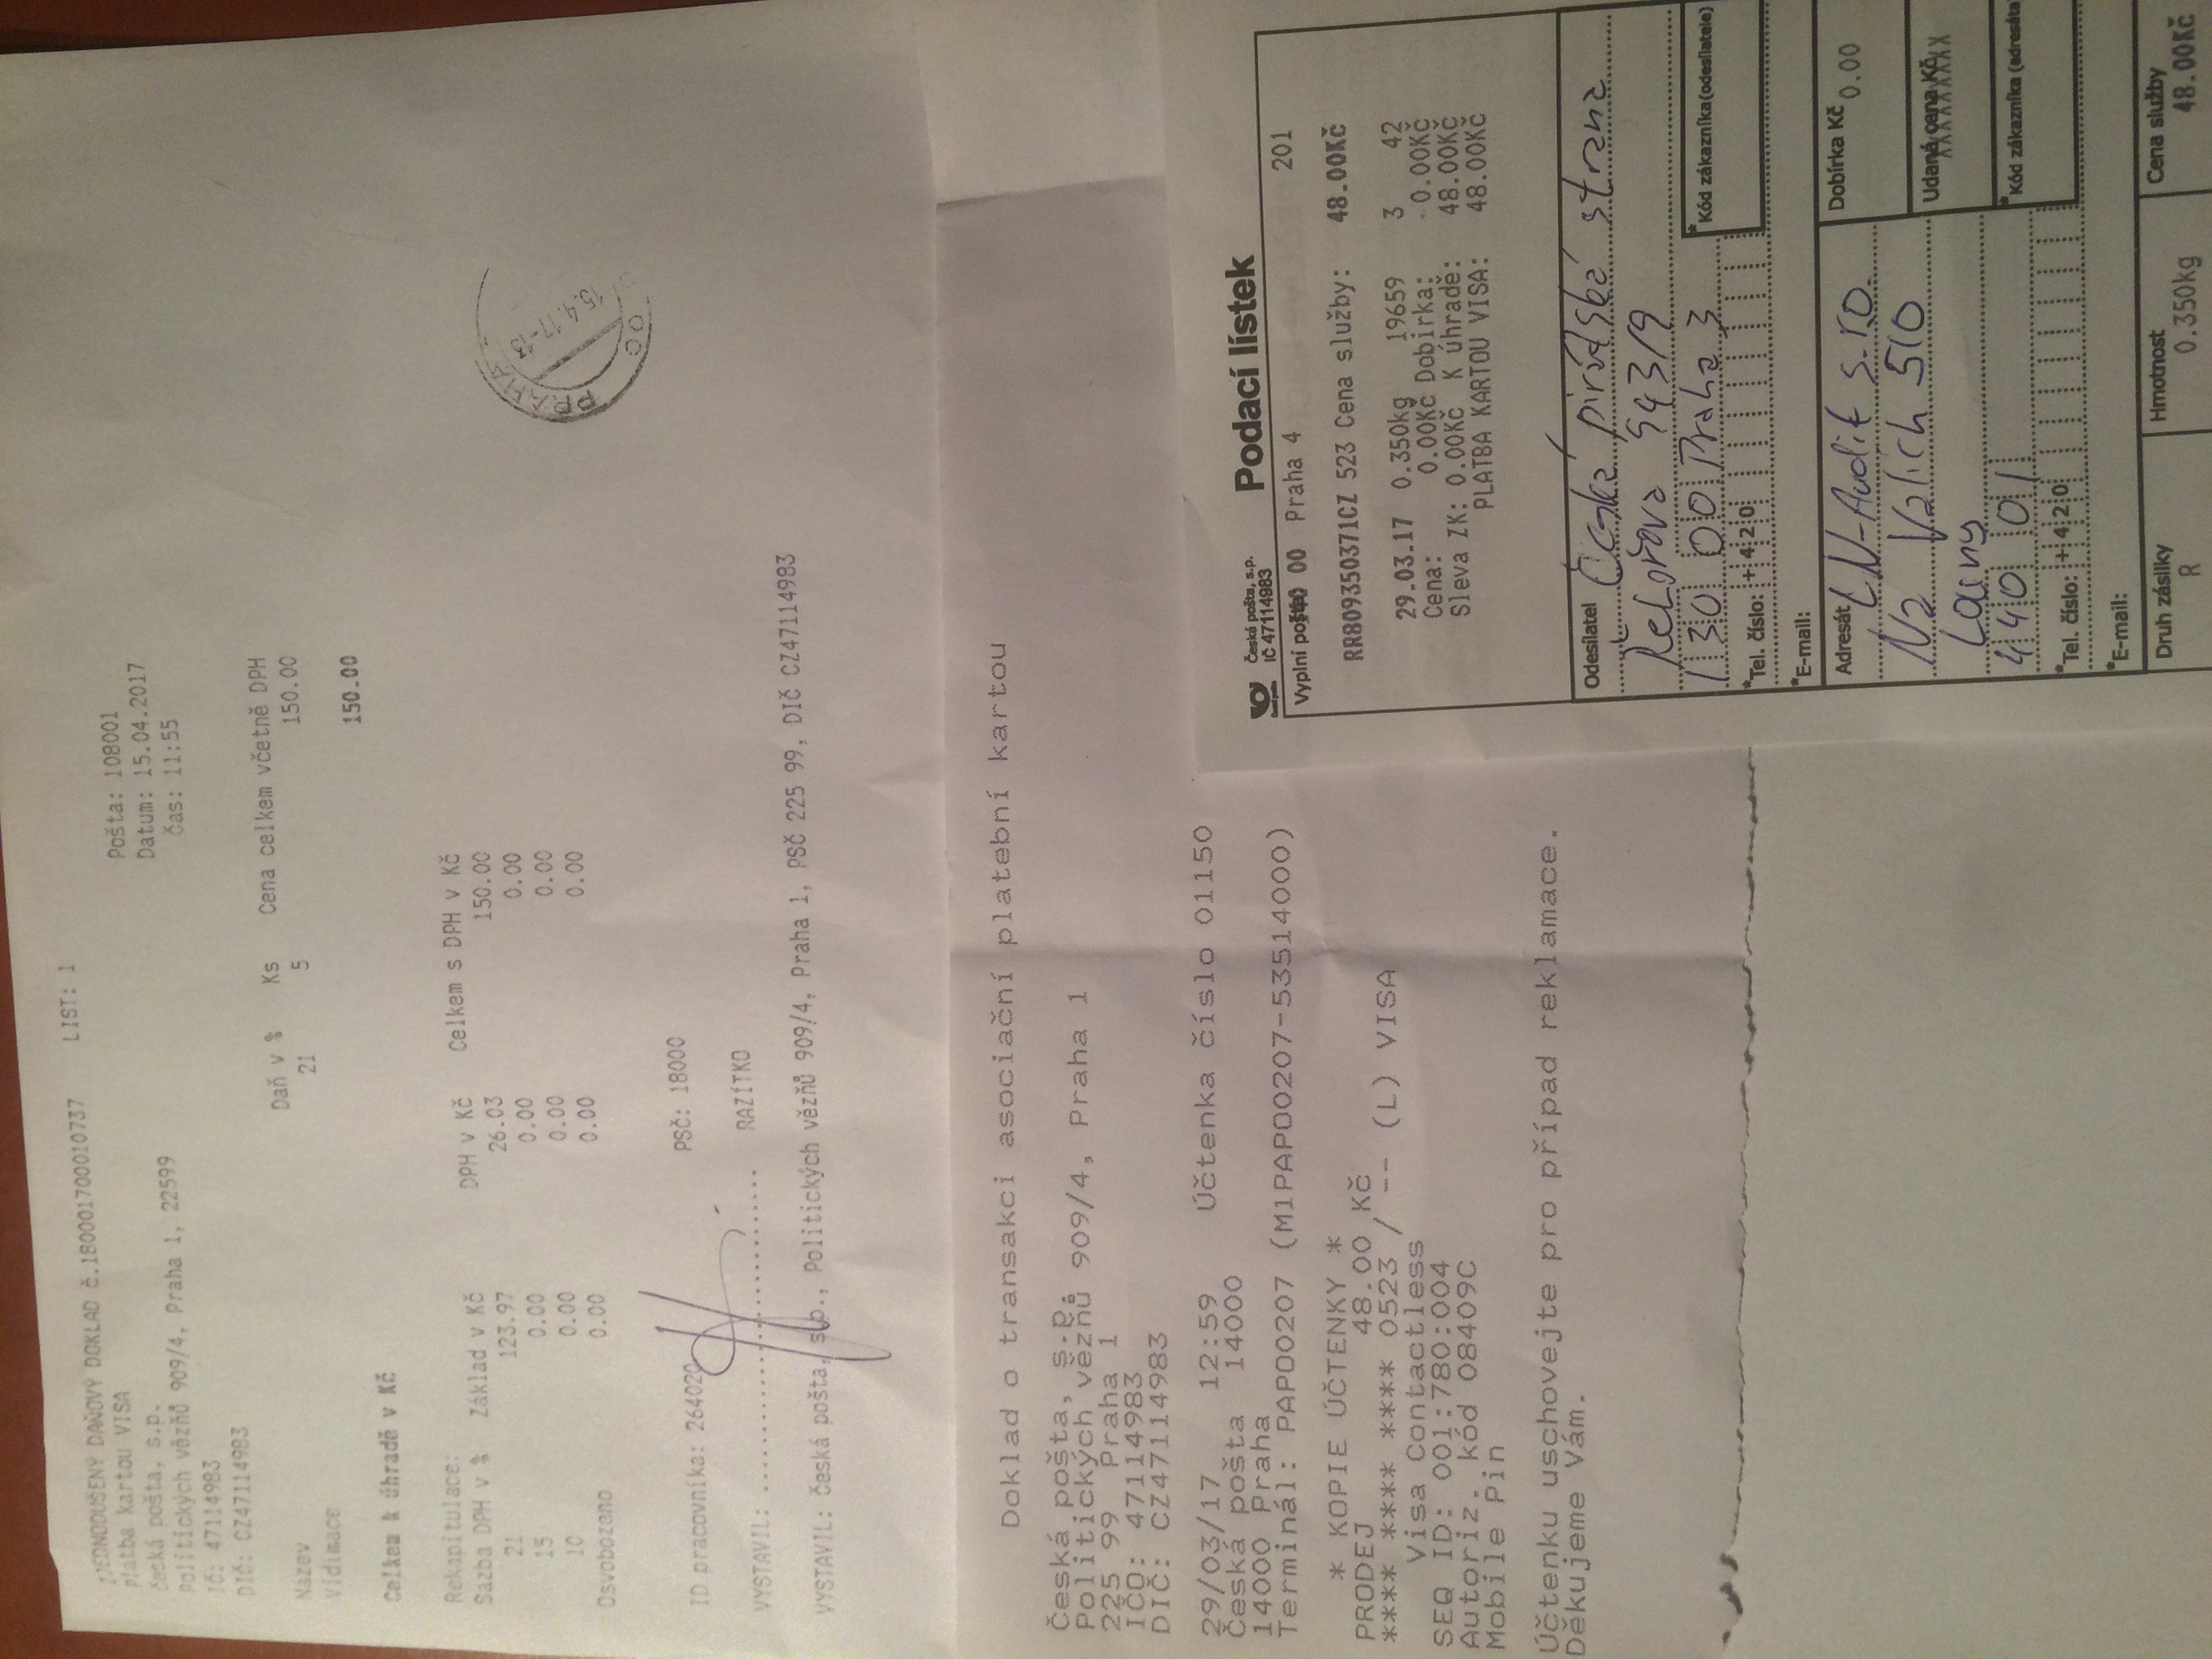 ZJEDNODUŠENÝ DAŇOVÝ DOKLAD č.180001700010737 LIST: 1
platba kartou VISA
česká pošta, s.p.
Politických vězňů 909/4, Praha 1, 22599
IČ: 47114983
DIČ: CZ47114983
Pošta: 108001
Datum: 15.04.2017
čas: 11:55
Název Daň v % Ks Cena celkem včetně DPH
Vidimace 21 5 150.00
Celkem k úhradě v Kč 150.00
Rekapitulace:
Sazba DPH v % Základ v Kč DPH v Kč Celkem s DPH v Kč
21 123.97 26.03 150.00
15 0.00 0.00 0.00
10 0.00 0.00 0.00
Osvobozeno 0.00 0.00 0.00
PRAHA
15.4.17-13
ID pracovníka: 264020 PSČ: 18000
VYSTAVIL: ............................ RAZÍTKO
VYSTAVIL: česká pošta, s.p., Politických vězňů 909/4, Praha 1, PSČ 225 99, DIČ CZ47114983
Doklad o transakci asociační platební kartou
Česká pošta, s.p.
Politických vězňů 909/4, Praha 1
225 99 Praha 1
IČO: 47114983
DIČ: CZ47114983
29/03/17 12:59 Účtenka číslo 01150
Česká pošta 14000
14000 Praha
Terminál: PAPO0207 (M1PAPO0207-53514000)
* KOPIE ÚČTENKY *
PRODEJ 48.00 Kč
**** **** **** 0523 / -- (L) VISA
Visa Contactless
SEQ ID: 001:780:004
Autoriz. kód 08409C
Mobile Pin
Účtenku uschovejte pro případ reklamace.
Děkujeme Vám.
Česká pošta, s.p.
IČ 47114983
Podací lístek
Vyplní pošta: 140 00 Praha 4 201
RR809350371CZ 523 Cena služby: 48.00Kč
29.03.17 0.350kg 19659 3 42
Cena: 0.00Kč Dobírka: 0.00Kč
Sleva ZK: 0.00Kč K úhradě: 48.00Kč
PLATBA KARTOU VISA: 48.00Kč
Odesílatel Česká pirátská strana
Řehořova 943/9
130 00 Praha 3
*Kód zákazníka (odesílatele)
*Tel. číslo: +420
*E-mail:
Adresát LN-Audit s.r.o.
Na Valích 510
Louny
440 01
Dobírka Kč 0.00
Udaná cena Kč XXXXXXXXX
*Kód zákazníka (adresáta
*Tel. číslo: +420
*E-mail:
Druh zásilky Hmotnost Cena služby
R 0.350kg 48.00Kč